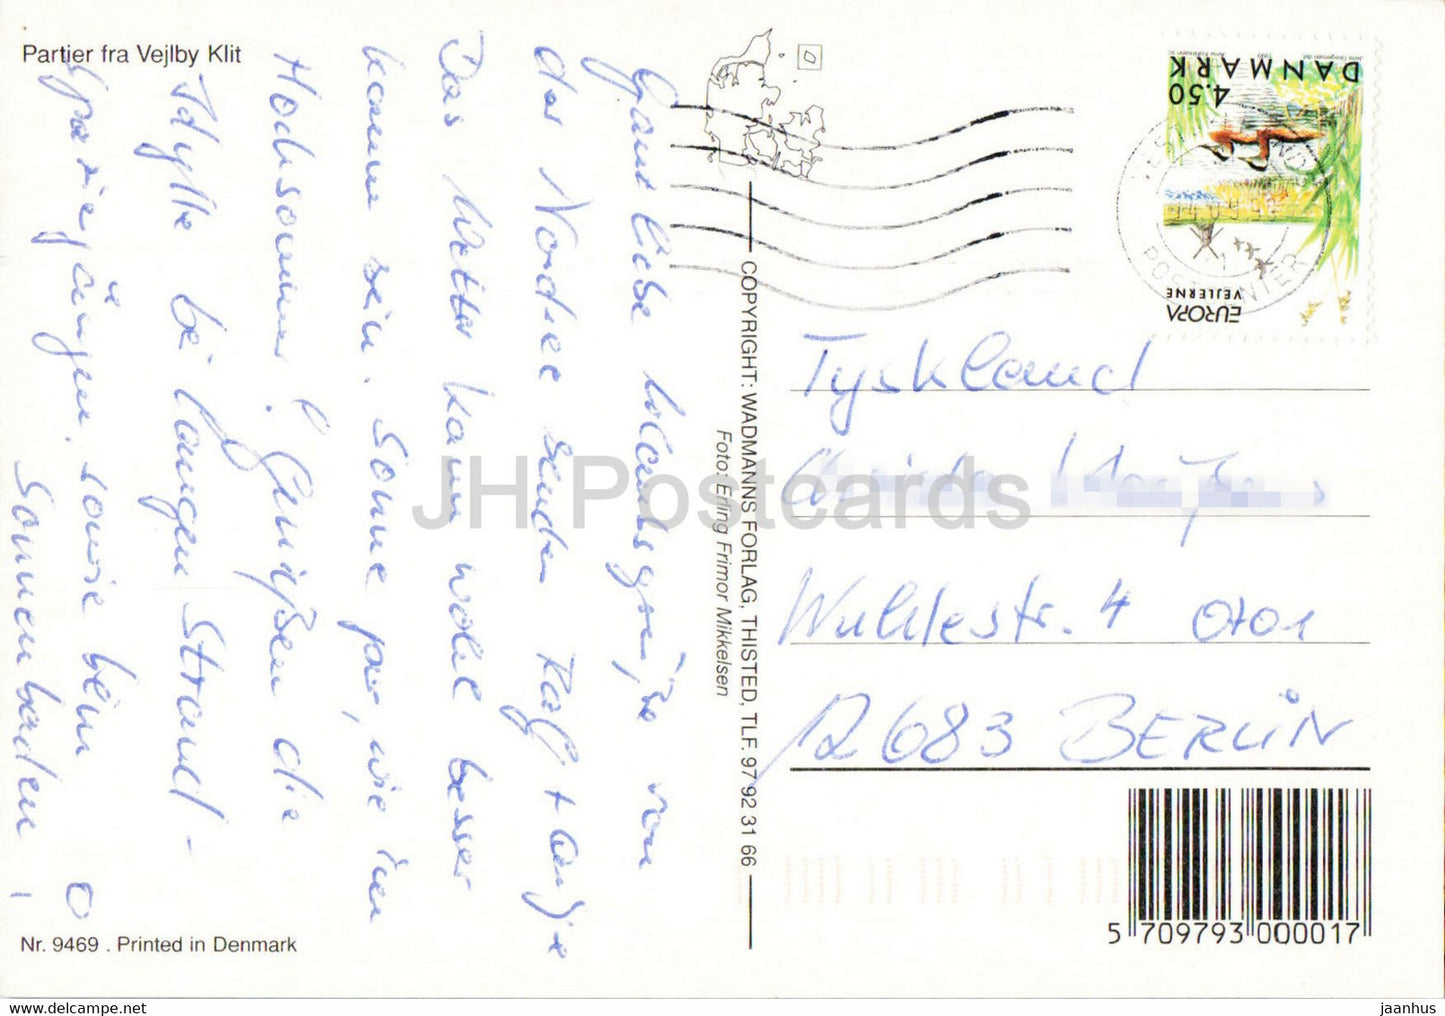 Partier fra Vejlby Klit
Ganz liebe Urlaubsgrüße von
der Nordsee senden Ralf + Antje
Das Wetter kann wohl besser
kaum sein. Sonne pur, wie im
Hochsommer! Genießen die
Idylle bei langen Strand-
spaziergängen, sowie beim
Sonnenbaden,
Nr. 9469 . Printed in Denmark
COPYRIGHT: WADMANNS FORLAG, THISTED, TLF. 97 92 31 66
Foto: Erling Frimor Mikkelsen
DANMARK
4.50
EUROPA
VEJLERNE
POSTCENTER
Tyskland
Wuhlestr. 4 0701
12683 BERLIN
5 709793 000017
JH Postcards
https://www.delcampe.net
jaanhus